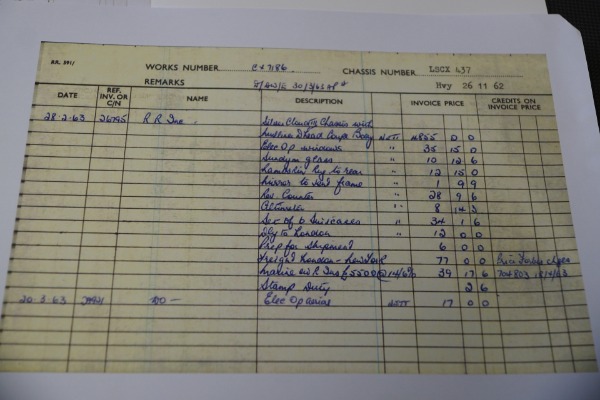 RR. 391/
WORKS NUMBER CX7186 CHASSIS NUMBER LSCX 437
REMARKS 30/3/63 Hwy 26 11 62
DATE REF. INV. OR C/N NAME DESCRIPTION INVOICE PRICE CREDITS ON INVOICE PRICE
28-2-63 26795 R R Inc. Silver Cloud III Chassis with
Mulliner Dhead Coupe Body NETT 4855 0 0
Elec Op windows " 35 15 0
Sundym glass " 10 12 6
Lambskin Rug to rear " 12 15 0
Mirror to vent frame " 1 9 9
Rev. Counter " 28 9 6
Altimeter " 8 14 3
Set of 6 Suitcases " 34 1 6
Dly to London " 12 0 0
Prep for Shipment 6 0 0
Freight London - New York 77 0 0
Marine Ins £5500 @ 14/6% 39 17 6 704803 18/4/63
Stamp Duty 2 6
20.3.63 -DO- Elec Op aerial NETT 17 0 0